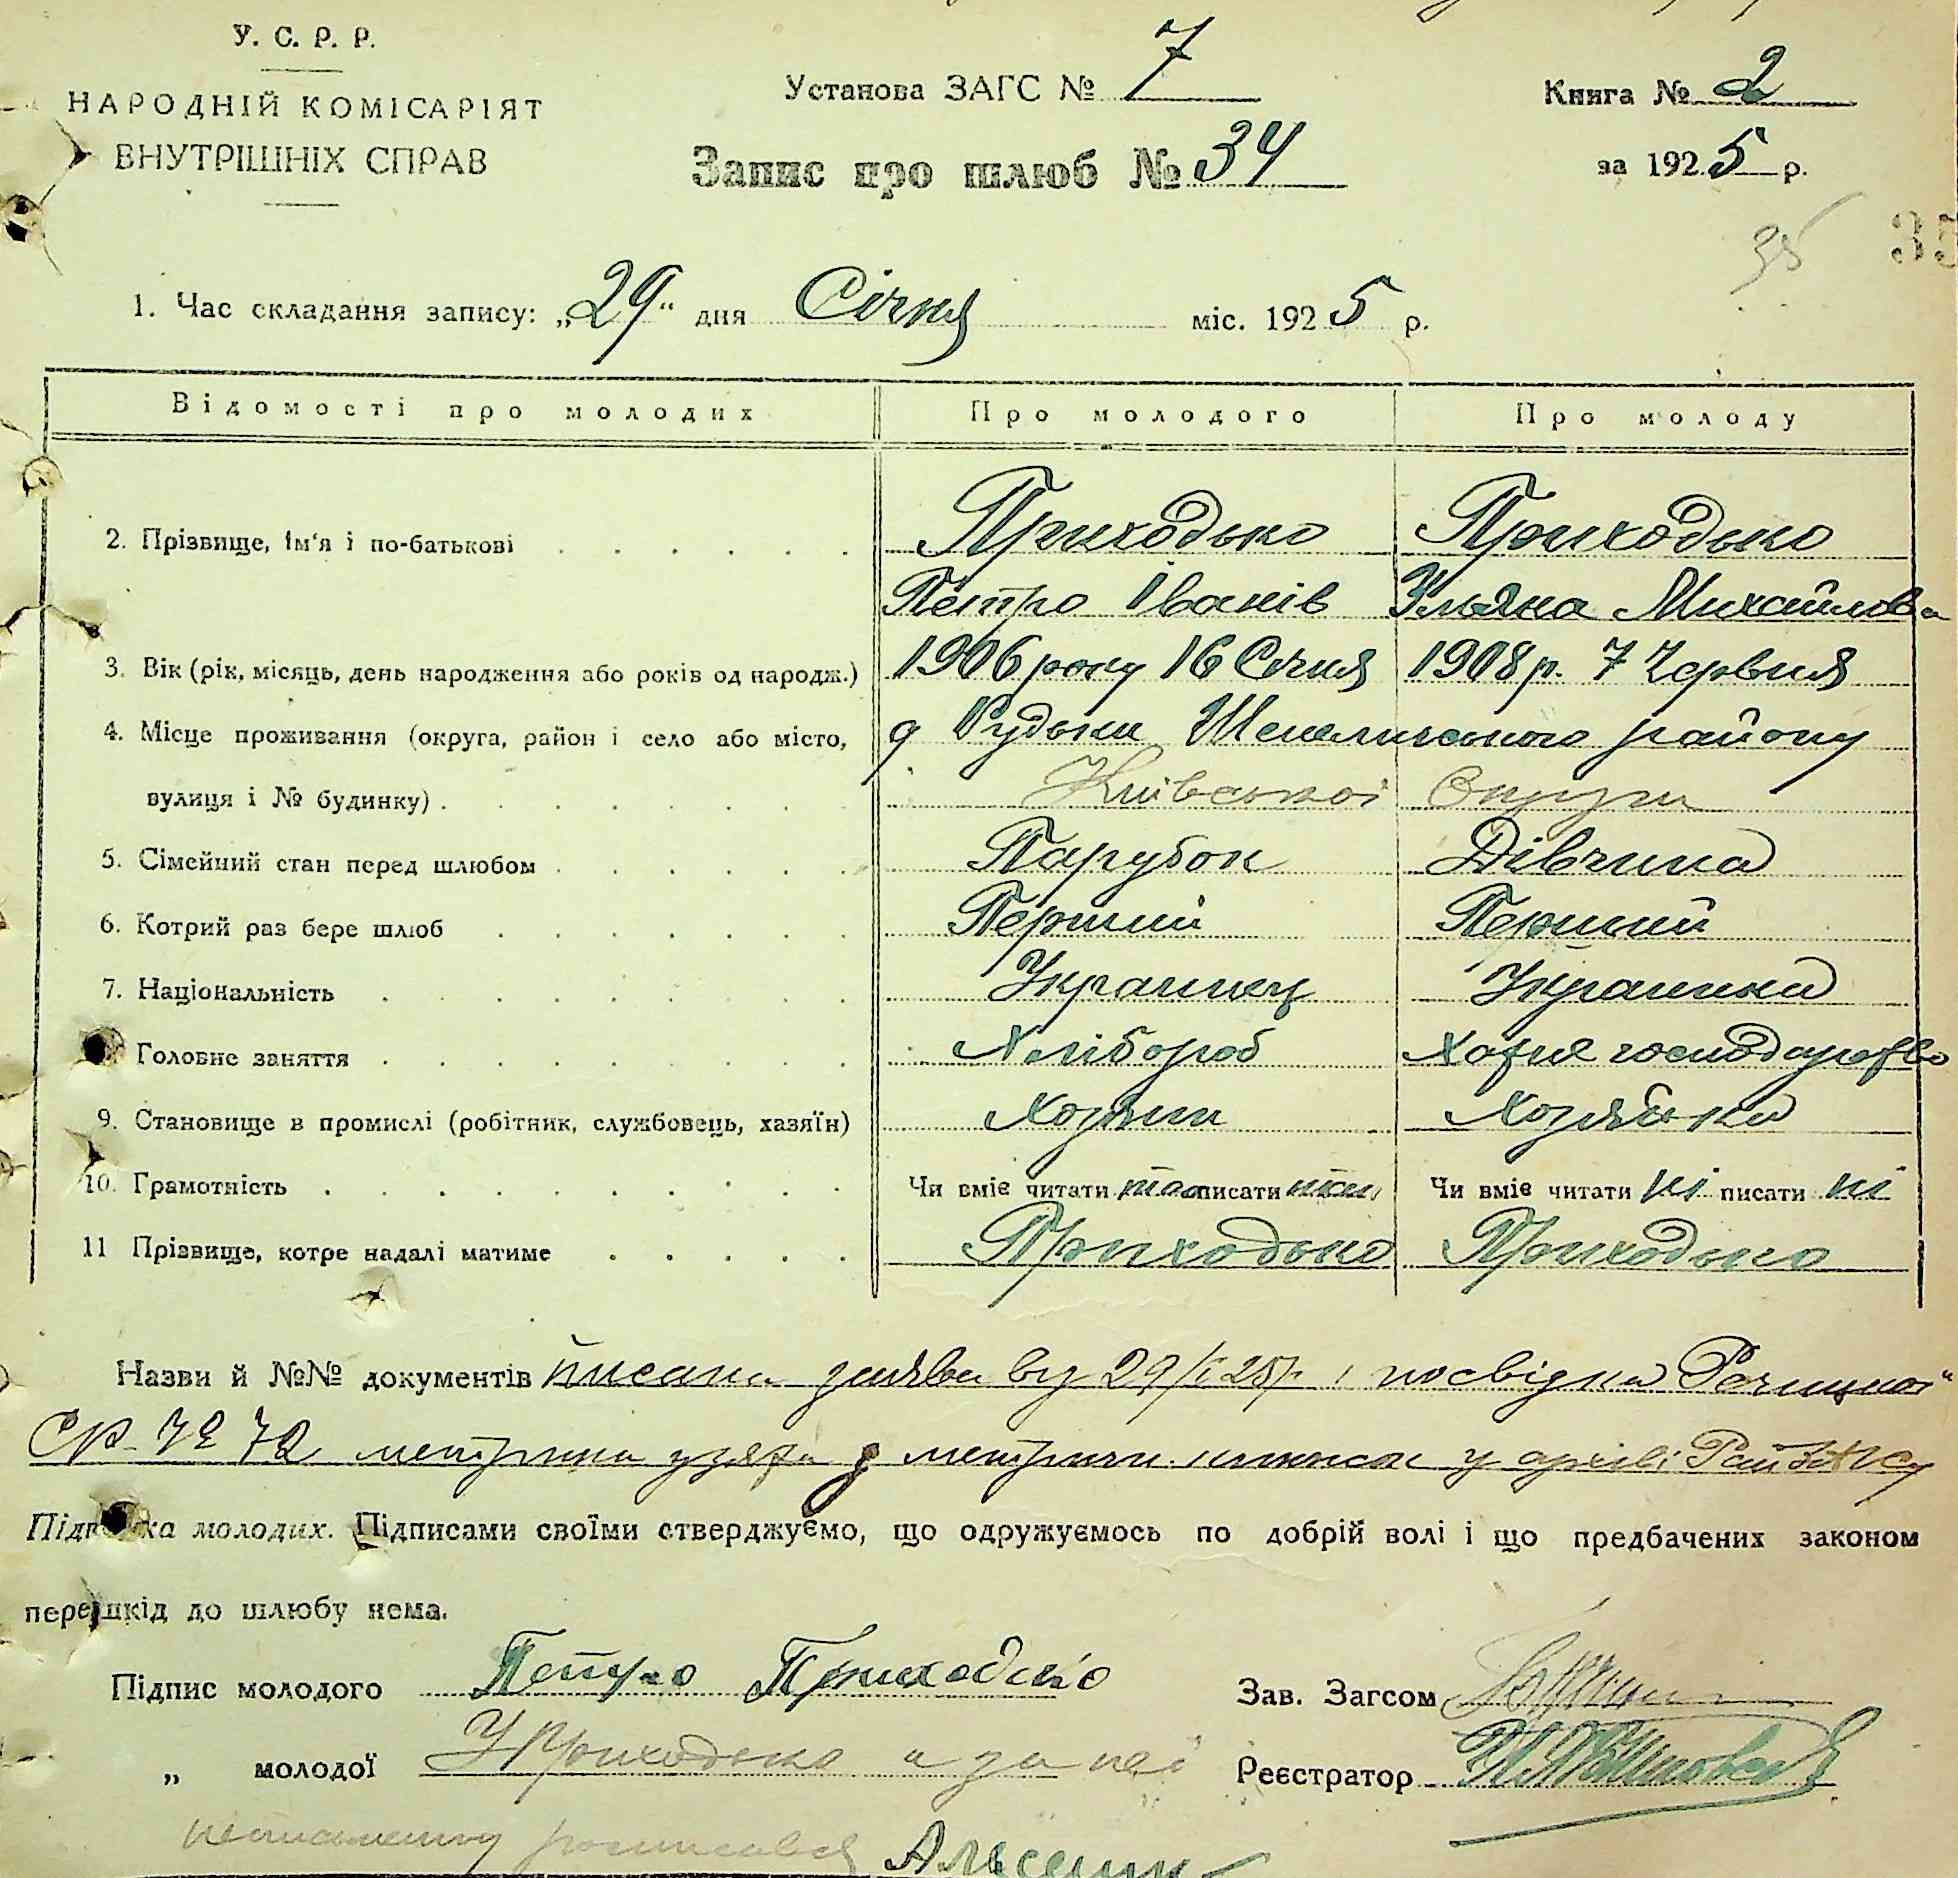 У. С. Р. Р.
НАРОДНІЙ КОМІСАРІЯТ
ВНУТРІШНІХ СПРАВ
Установа ЗАГС № 7
Книга № 2
Запис про шлюб № 34
за 1925 р.
35
35
1. Час складання запису: „29" дня Січня міс. 1925 р.
Відомості про молодих Про молодого Про молоду
2. Прізвище, ім'я і по-батькові Приходько Приходько
Петро Іванів Уляна Михайлова
3. Вік (рік, місяць, день народження або років од народж.) 1906 року 16 Січня 1908 р. 7 Червня
4. Місце проживання (округа, район і село або місто, Рудьки Шепелицького району
вулиця і № будинку) Київської Округи
5. Сімейний стан перед шлюбом Парубок Дівчина
6. Котрий раз бере шлюб Перший Перший
7. Національність Украинец Украинка
Головне заняття Хлібороб Хатне господарство
9. Становище в промислі (робітник, службовець, хазяїн) Хозяин Хозяйка
10. Грамотність Чи вміє читати так писати так Чи вміє читати ні писати ні
11 Прізвище, котре надалі матиме Приходько Приходько
Назви й №№ документів писана заява від 29/I 25 р. і посвідка
СР № 72 метрика узята з метрич. книжок у архіві РайЗАГСу
Підписка молодих. Підписами своїми стверджуємо, що одружуємось по добрій волі і що предбачених законом
перешкід до шлюбу нема.
Підпис молодого Петро Приходько Зав. Загсом
„ молодої У Приходько а за неї Реєстратор
неписьменну росписався